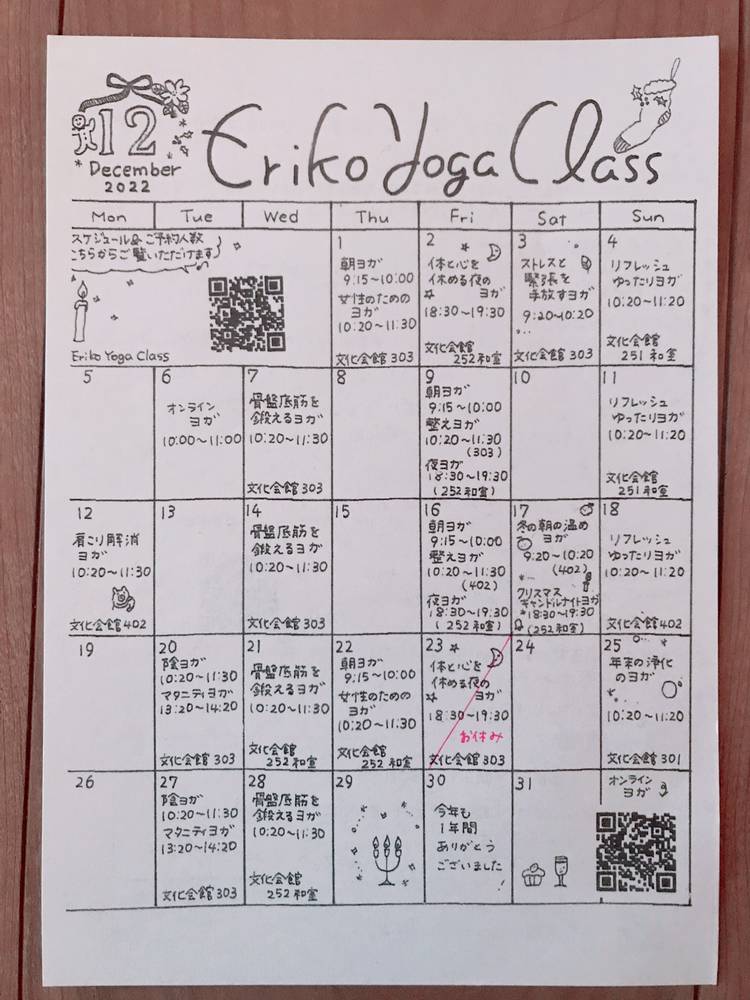 12
December
2022
Eriko Yoga Class
Mon Tue Wed Thu Fri Sat Sun
スケジュール&ご予約人数
こちらからご覧いただけます
Eriko Yoga Class
1
朝ヨガ
9:15〜10:00
女性のための
ヨガ
10:20〜11:30
文化会館303
2
体と心を
休める夜の
ヨガ
18:30〜19:30
文化会館
252和室
3
ストレスと
緊張を
手放すヨガ
9:20〜10:20
文化会館303
4
リフレッシュ
ゆったりヨガ
10:20〜11:20
文化会館
251和室
5
6
オンライン
ヨガ
10:00〜11:00
7
骨盤底筋を
鍛えるヨガ
10:20〜11:30
文化会館303
8
9
朝ヨガ
9:15〜10:00
整えヨガ
10:20〜11:30
(303)
夜ヨガ
18:30〜19:30
(252和室)
10
11
リフレッシュ
ゆったりヨガ
10:20〜11:20
文化会館
251和室
12
肩こり解消
ヨガ
10:20〜11:30
文化会館402
13
14
骨盤底筋を
鍛えるヨガ
10:20〜11:30
文化会館303
15
16
朝ヨガ
9:15〜10:00
整えヨガ
10:20〜11:30
(402)
夜ヨガ
18:30〜19:30
(252和室)
17
冬の朝の温め
ヨガ
9:20〜10:20
(402)
クリスマス
キャンドルナイトヨガ
*18:30〜19:30
(252和室)
18
リフレッシュ
ゆったりヨガ
10:20〜11:20
文化会館402
19
20
陰ヨガ
10:20〜11:30
マタニティヨガ
13:20〜14:20
文化会館303
21
骨盤底筋を
鍛えるヨガ
10:20〜11:30
文化会館
252和室
22
朝ヨガ
9:15〜10:00
女性のための
ヨガ
10:20〜11:30
文化会館
252和室
23
体と心を
休める夜の
ヨガ
18:30〜19:30
お休み
文化会館303
24
25
年末の浄化
のヨガ
10:20〜11:20
文化会館301
26
27
陰ヨガ
10:20〜11:30
マタニティヨガ
13:20〜14:20
文化会館303
28
骨盤底筋を
鍛えるヨガ
10:20〜11:30
文化会館
252和室
29
30
今年も
1年間
ありがとう
ございました!
31
オンライン
ヨガ